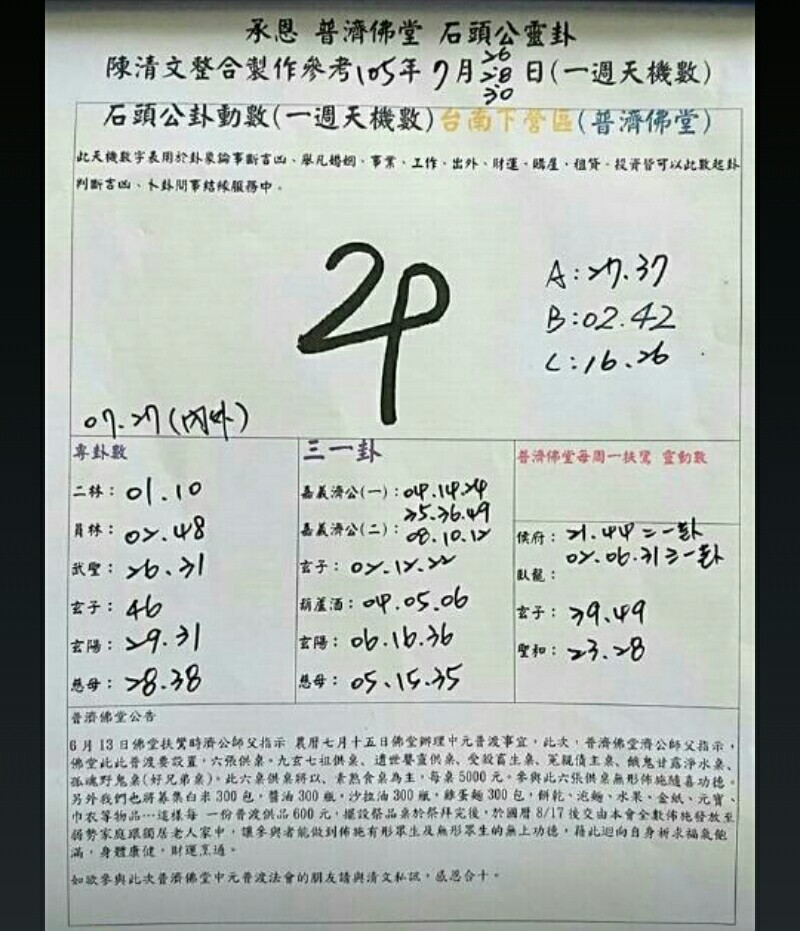 承恩 普濟佛堂 石頭公靈卦
陳清文整合製作參考105年7月26 28 30日(一週天機數)
石頭公卦動數(一週天機數)台南下營區(普濟佛堂)
此天機數字表用於卦象論事斷吉凶、舉凡婚姻、事業、工作、出外、財運、購屋、租貸、投資皆可以此數起卦
判斷吉凶、卜卦問事結緣服務中。
A:27.37
B:02.42
C:16.26
07.27(內外)
專卦數
二林：01.10
員林：02.48
武聖：26.31
玄子：46
玄陽：29.31
慈母：28.38
三一卦
嘉義濟公(一)：04.14.24
35.36.49
嘉義濟公(二)：08.10.12
玄子：02.12.22
葫蘆酒：04.05.06
玄陽：06.16.36
慈母：05.15.35
普濟佛堂每周一扶鸞 靈動數
侯府：21.44二一卦
02.06.31三一卦
臥龍：
玄子：39.49
聖和：23.28
普濟佛堂公告
6月13日佛堂扶鸞時濟公師父指示 農曆七月十五日佛堂辦理中元普渡事宜，此次，普濟佛堂濟公師父指示，
佛堂此此普渡要設置，六張供桌。九玄七祖供桌、遺世嬰靈供桌、受殺畜生桌、冤親債主桌、餓鬼甘露淨水桌、
孤魂野鬼桌(好兄弟桌)。此六桌供桌將以、素熟食桌為主，每桌5000元。參與此六張供桌無形佈施隨喜功德。
另外我們也將募集白米300包，醬油300瓶，沙拉油300瓶，雞蛋麵300包，餅乾、泡麵、水果、金紙、元寶、
巾衣等物品…這樣每 一份普渡供品600元，擺設祭品桌於祭拜完後，於國曆8/17後交由本會全數佈施發放至
弱勢家庭跟獨居老人家中，讓參與者能做到佈施有形眾生及無形眾生的無上功德，藉此迴向自身祈求福氣飽
滿，身體康健，財運亨通。
如欲參與此次普濟佛堂中元普渡法會的朋友請與清文私訊，感恩合十。